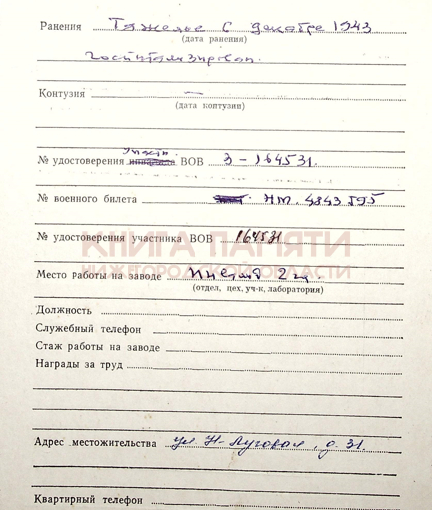 Ранения Тяжелые в декабре 1943
(дата ранения)
госпитализирован.
Контузия —
(дата контузии)
участн.
№ удостоверения инвалида ВОВ 3-164531.
№ военного билета НТ. 4843595
№ удостоверения участника ВОВ 164531
КНИГА ПАМЯТИ
НИЖЕГОРОДСКОЙ ОБЛАСТИ
Место работы на заводе 2ц
(отдел, цех, уч-к, лаборатория)
Должность
Служебный телефон
Стаж работы на заводе
Награды за труд
Адрес местожительства ул Н-Луговая, д. 31
Квартирный телефон